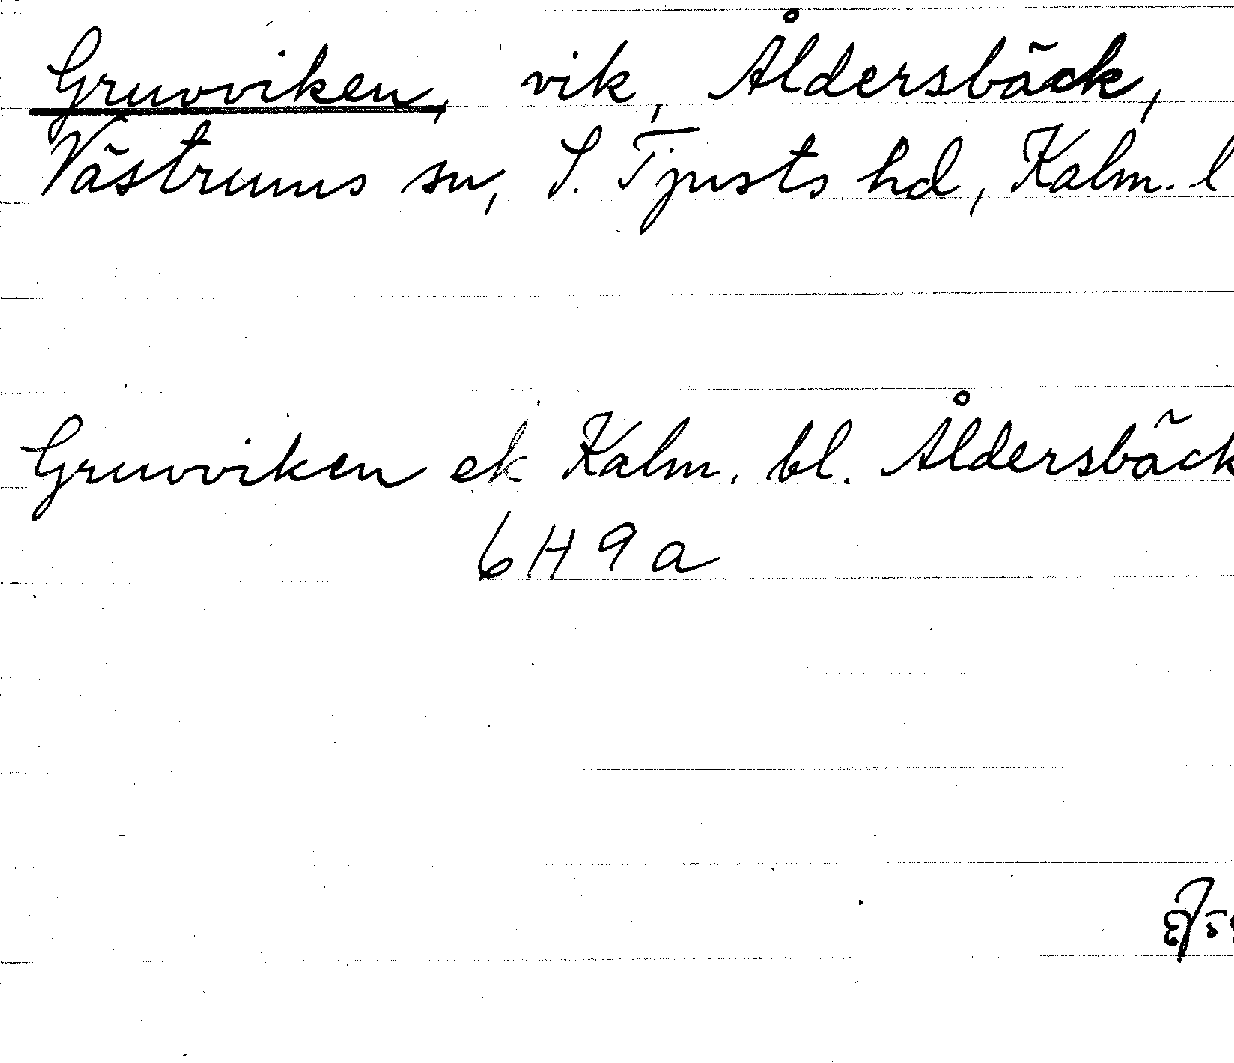 Gruvviken, vik, Åldersbäck,
Västrums sn, S. Tjusts hd, Kalm. l
Gruvviken ek Kalm. bl. Åldersbäck
6H9a